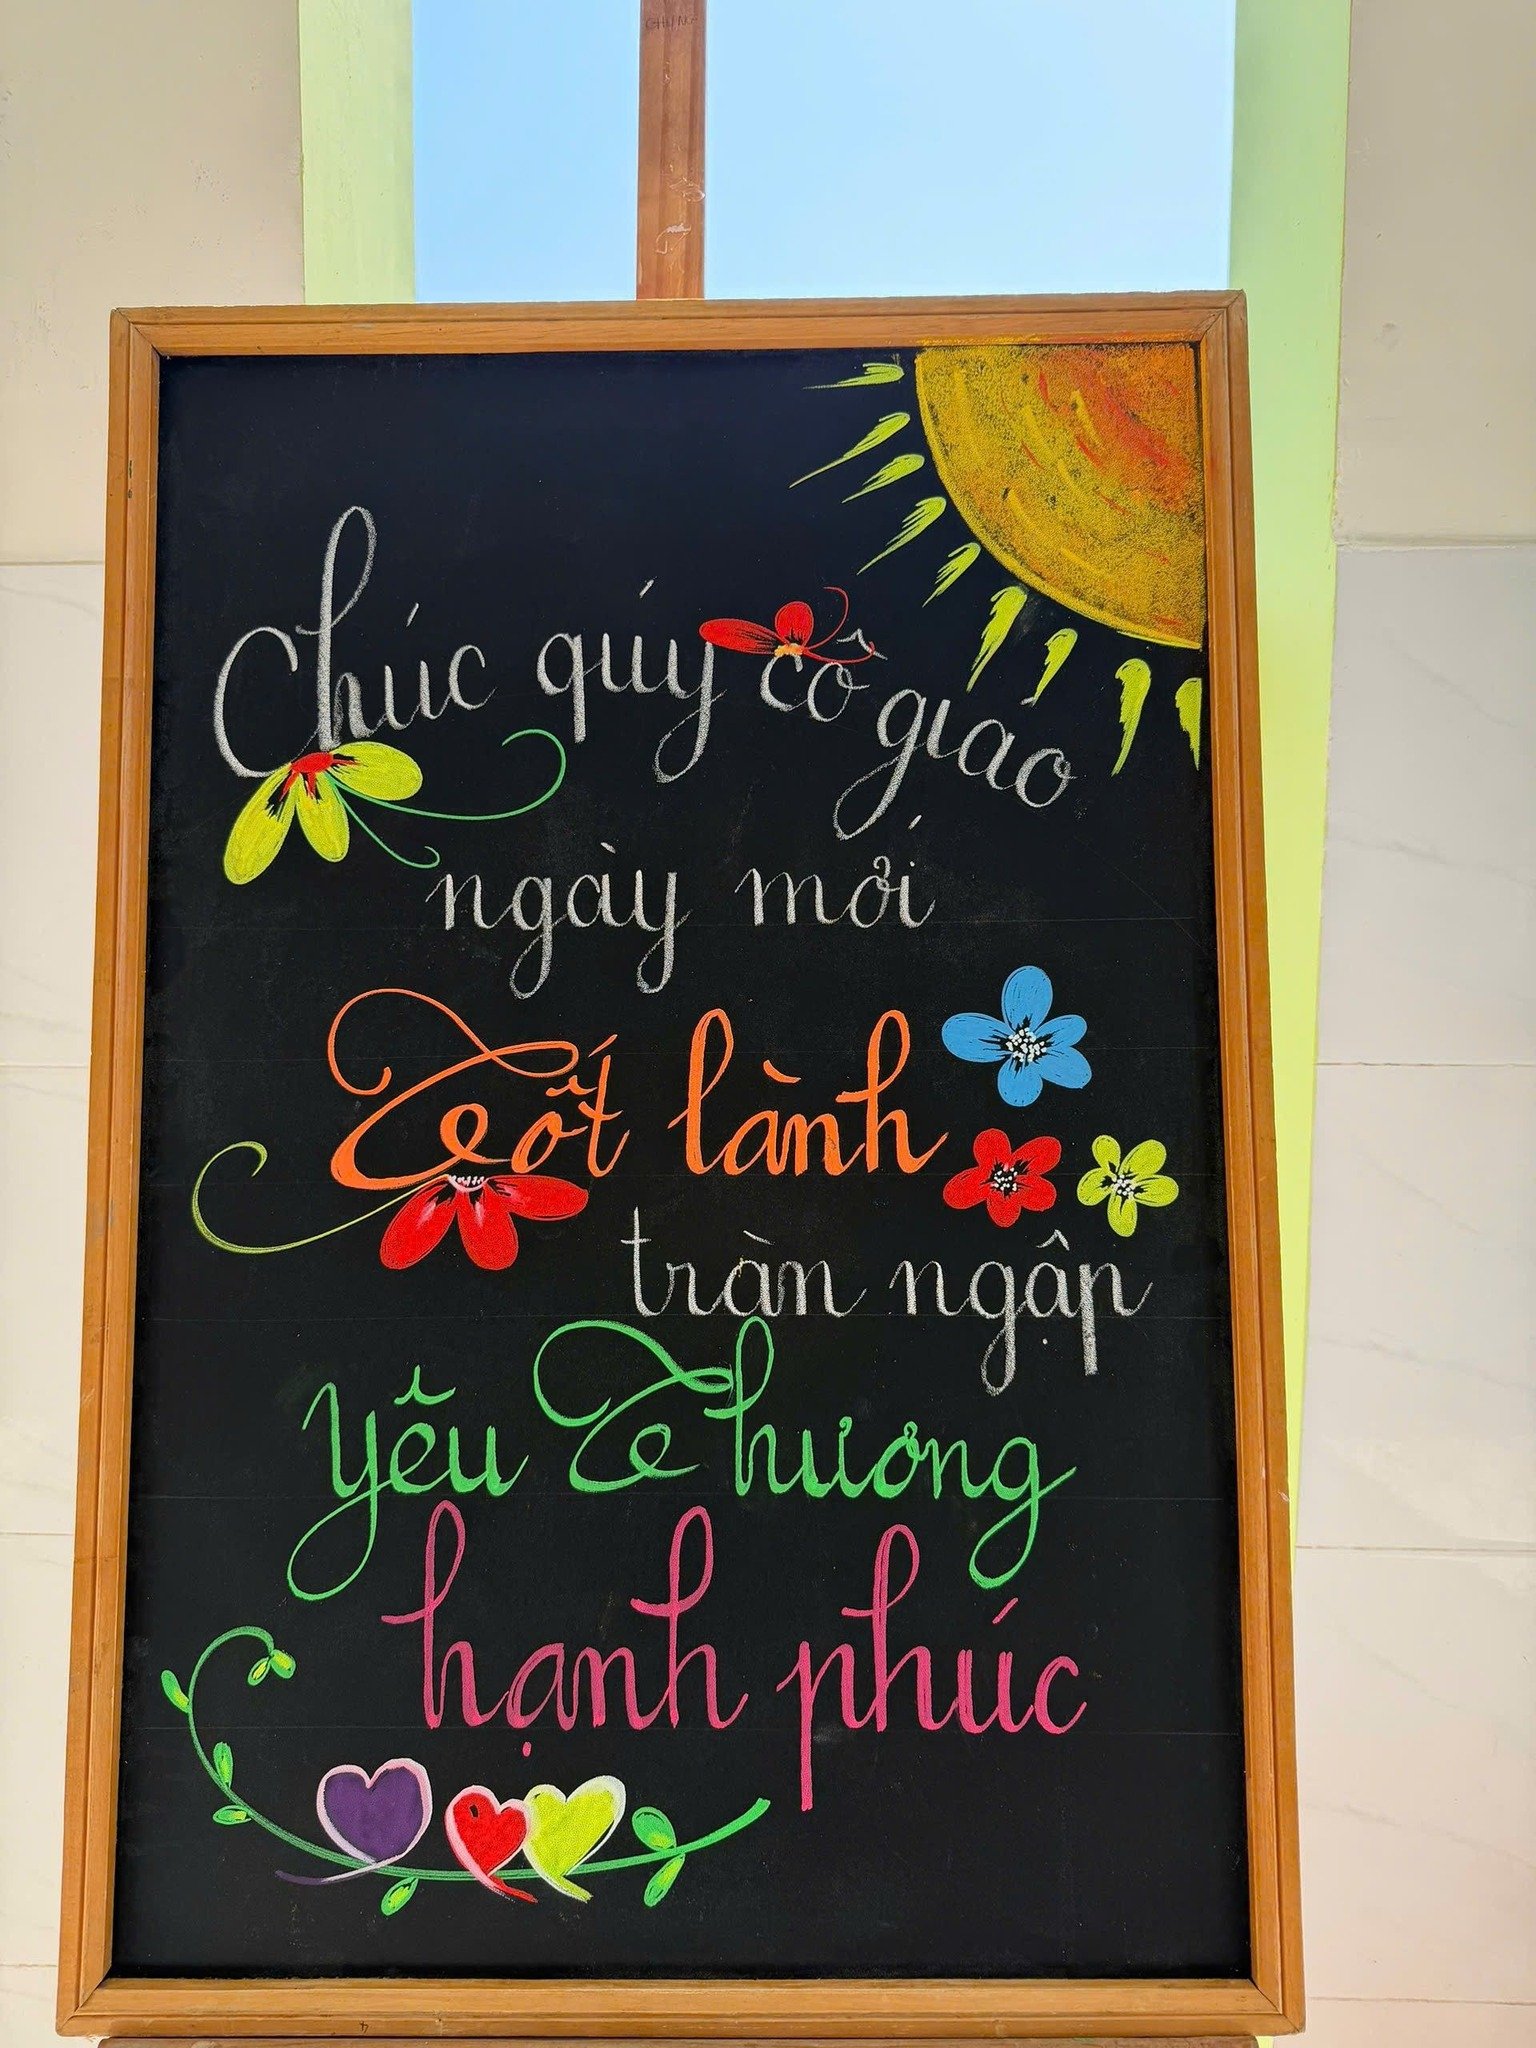 CHUNG
Chúc quý cô giáo
ngày mới
Tốt lành
tràn ngập
yêu Thương
hạnh phúc
4